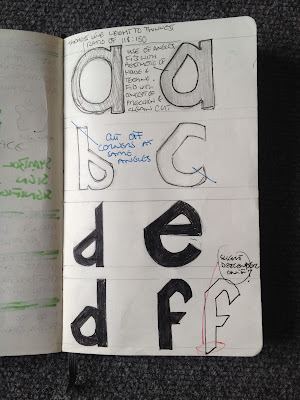 LINE WEIGHT TO THINNESS
RATIO OF 118:150
a
USE OF ANGLES
FITS WITH
AESTHETIC OF
HOUSE &
TECHNO.
FITS WITH
CONCEPT OF
PRECISION &
CLEAN CUT
a
b
CUT OFF
CORNERS AT
SAME
ANGLES
c
d e
d f
SLIGHT
DESCENDER
ON F?
f